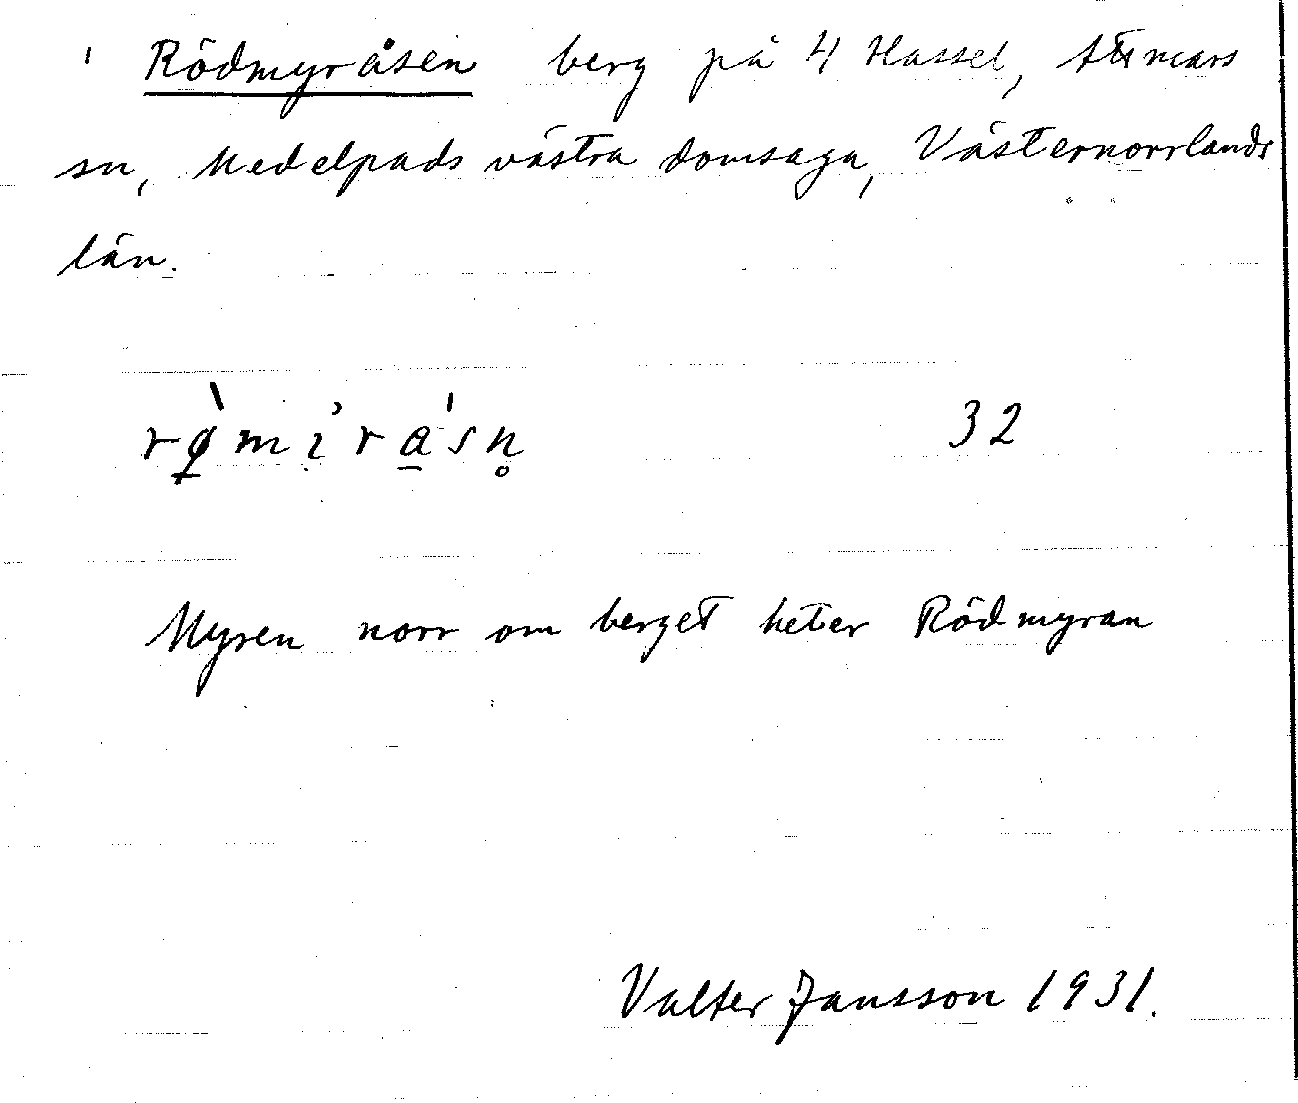 Rödmyråsen berg på 4 Hassel, Attmars
sn, Medelpads västra domsaga, Västernorrlands
län.
32
Myren norr om berget heter Rödmyran
Valter Jansson 1931.